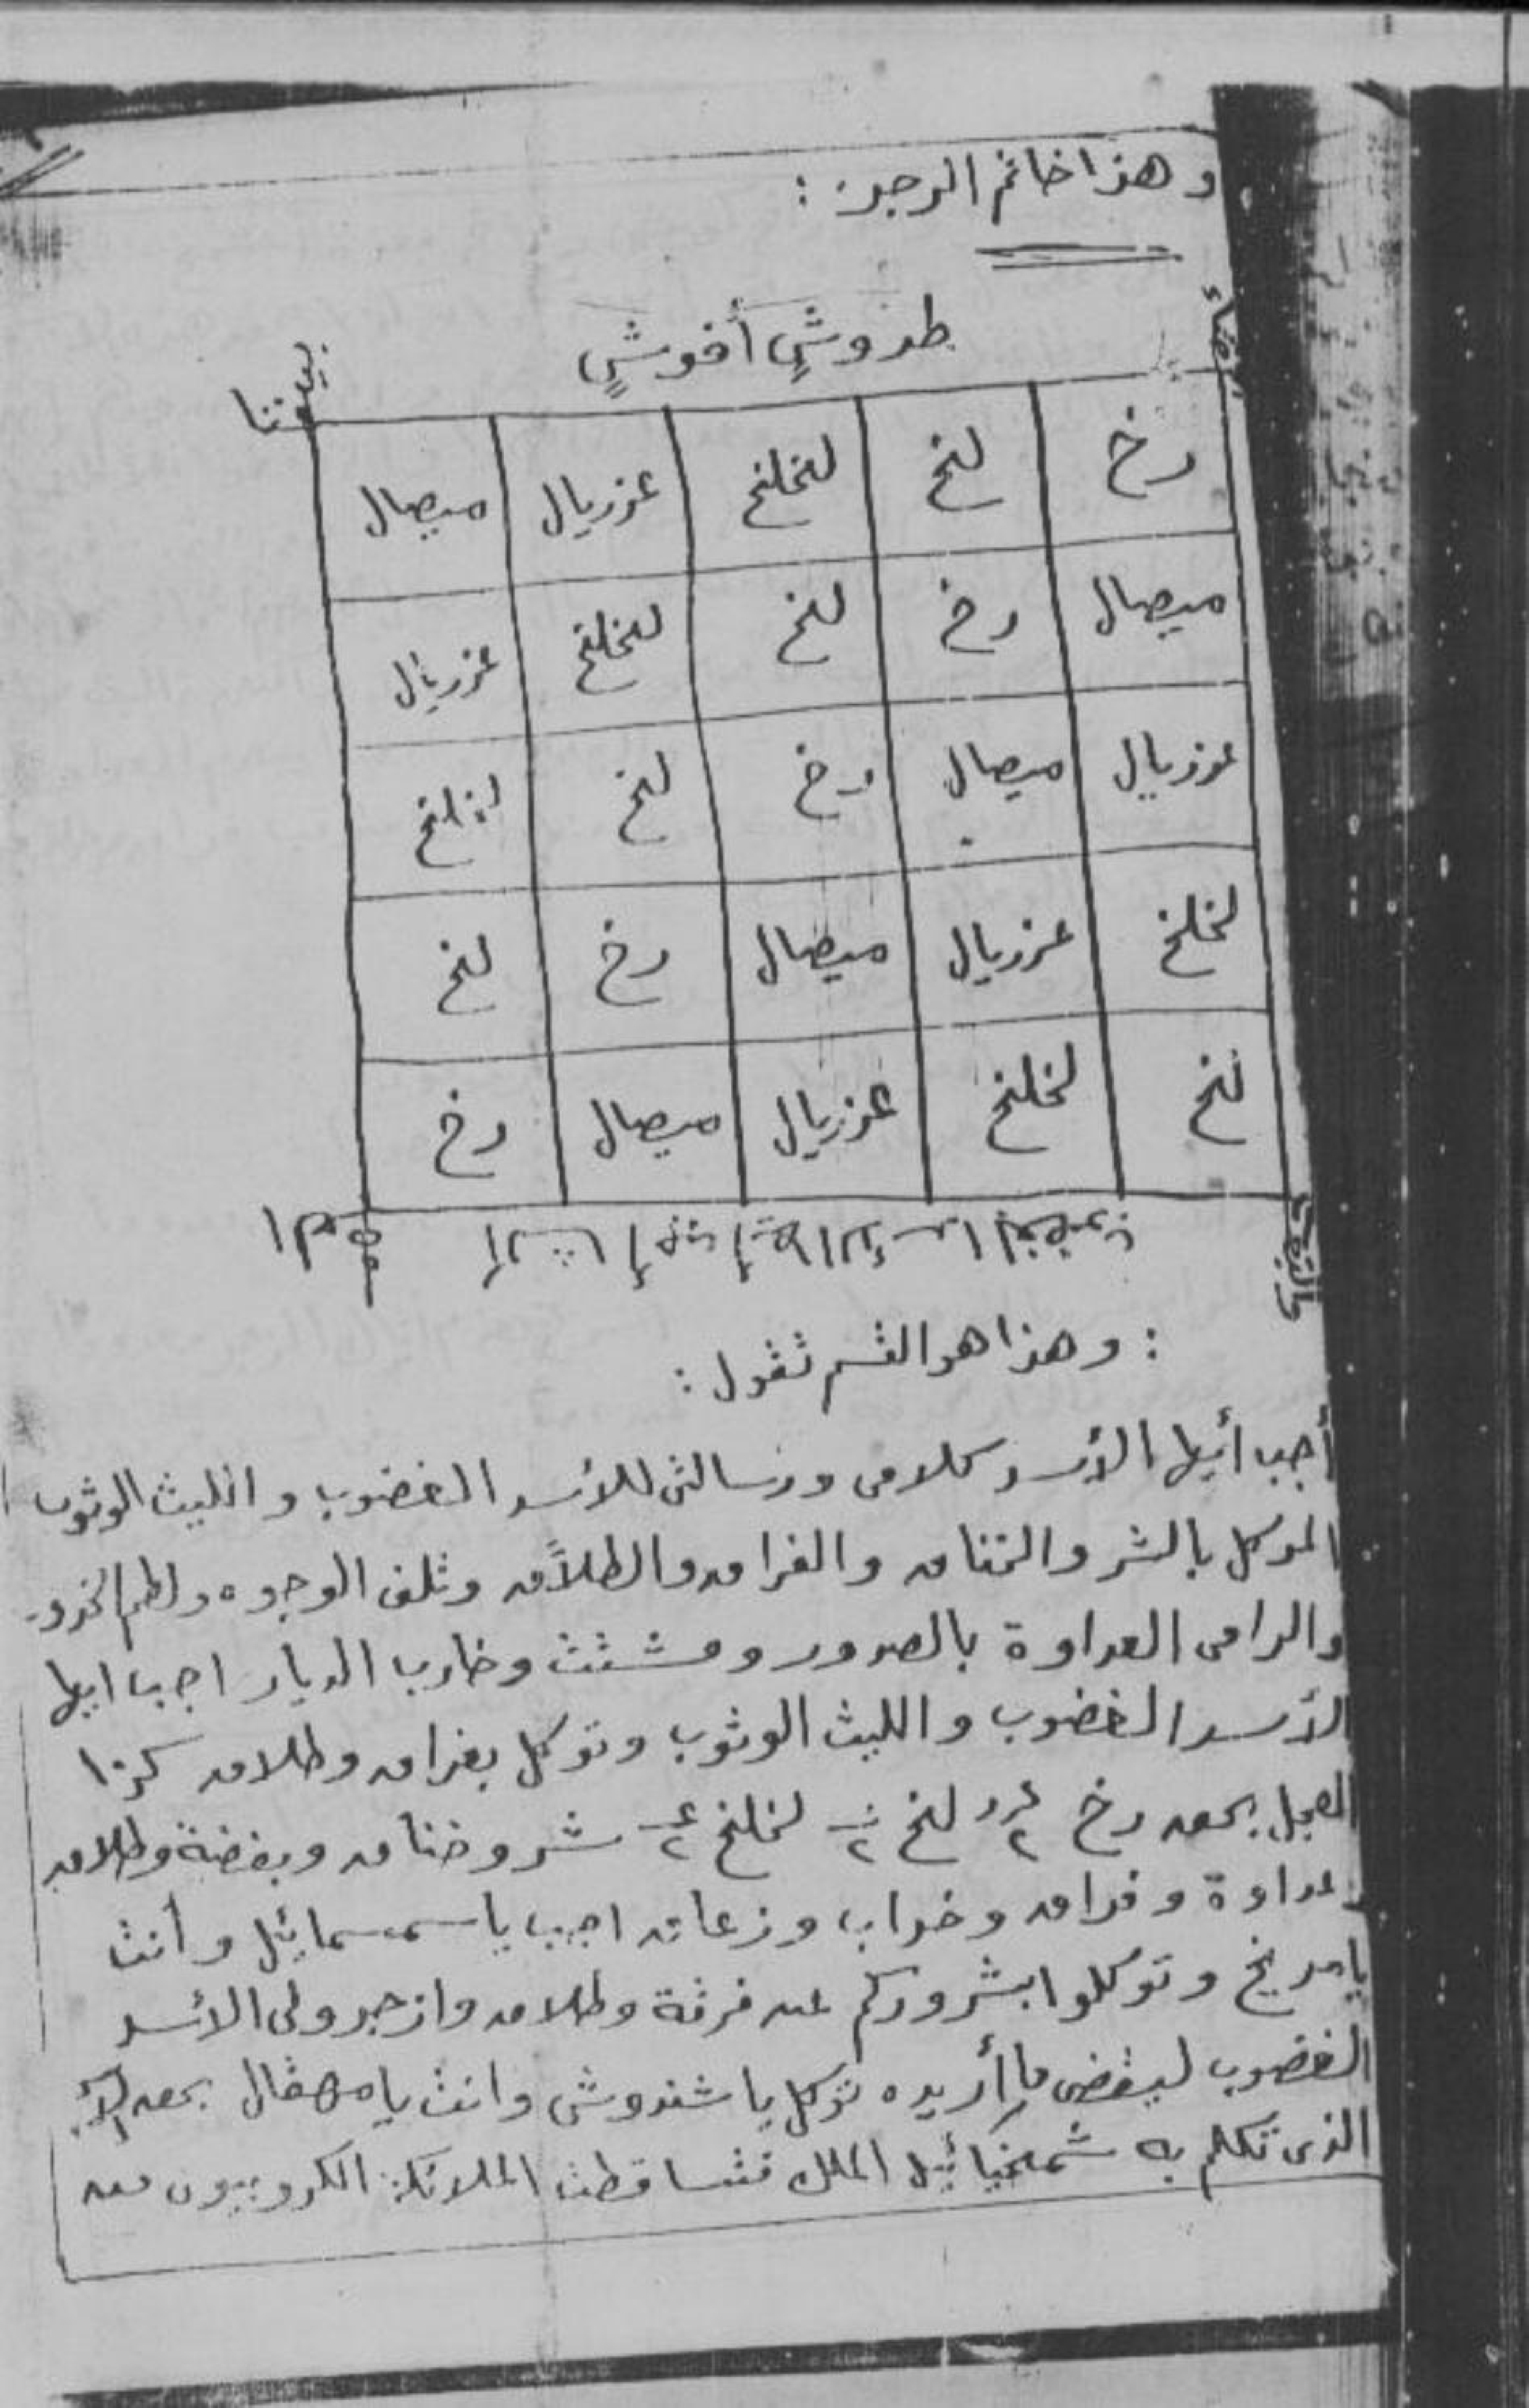 وهذا خاتم الوجه :
طدوش أخوش
رخ لنخ لنخلنخ عزريال ميصال
ميصال رخ لنخ لنخلنخ عزريال
عزريال ميصال رخ لنخ لنخلنخ
لنخلنخ عزريال ميصال رخ لنخ
لنخ لنخلنخ عزريال ميصال رخ
: وهذا هو القسم تقول :
أجب أيها الأسد كلامى ورسالتى للأسد الغضوب والليث الوثوب
الموكل بالشر والخناق والفراق والطلاق وتلف الوجوه ولطم الخدود
والرامى العداوة بالصدور ومشتت وخارب الديار اجب ايها
الأسد الغضوب والليث الوثوب وتوكل بفراق وطلاق كذا
العجل بحق رخ ٢ لنخ ٢ لنخلنخ ٢ شر وخناق وبغضة وطلاق
عداوة وفراق وخراب وزعاق اجب يا سمسمائيل وأنت
يا مريخ وتوكلوا بشروركم على فرقة وطلاق وازجروا لى الأسد
الغضوب ليقضى ما أريده توكل يا شندوش وانت يا مهقال بحق
الذى تكلم به شمخيائيل الملك فتساقطت الملائكة الكروبيون من